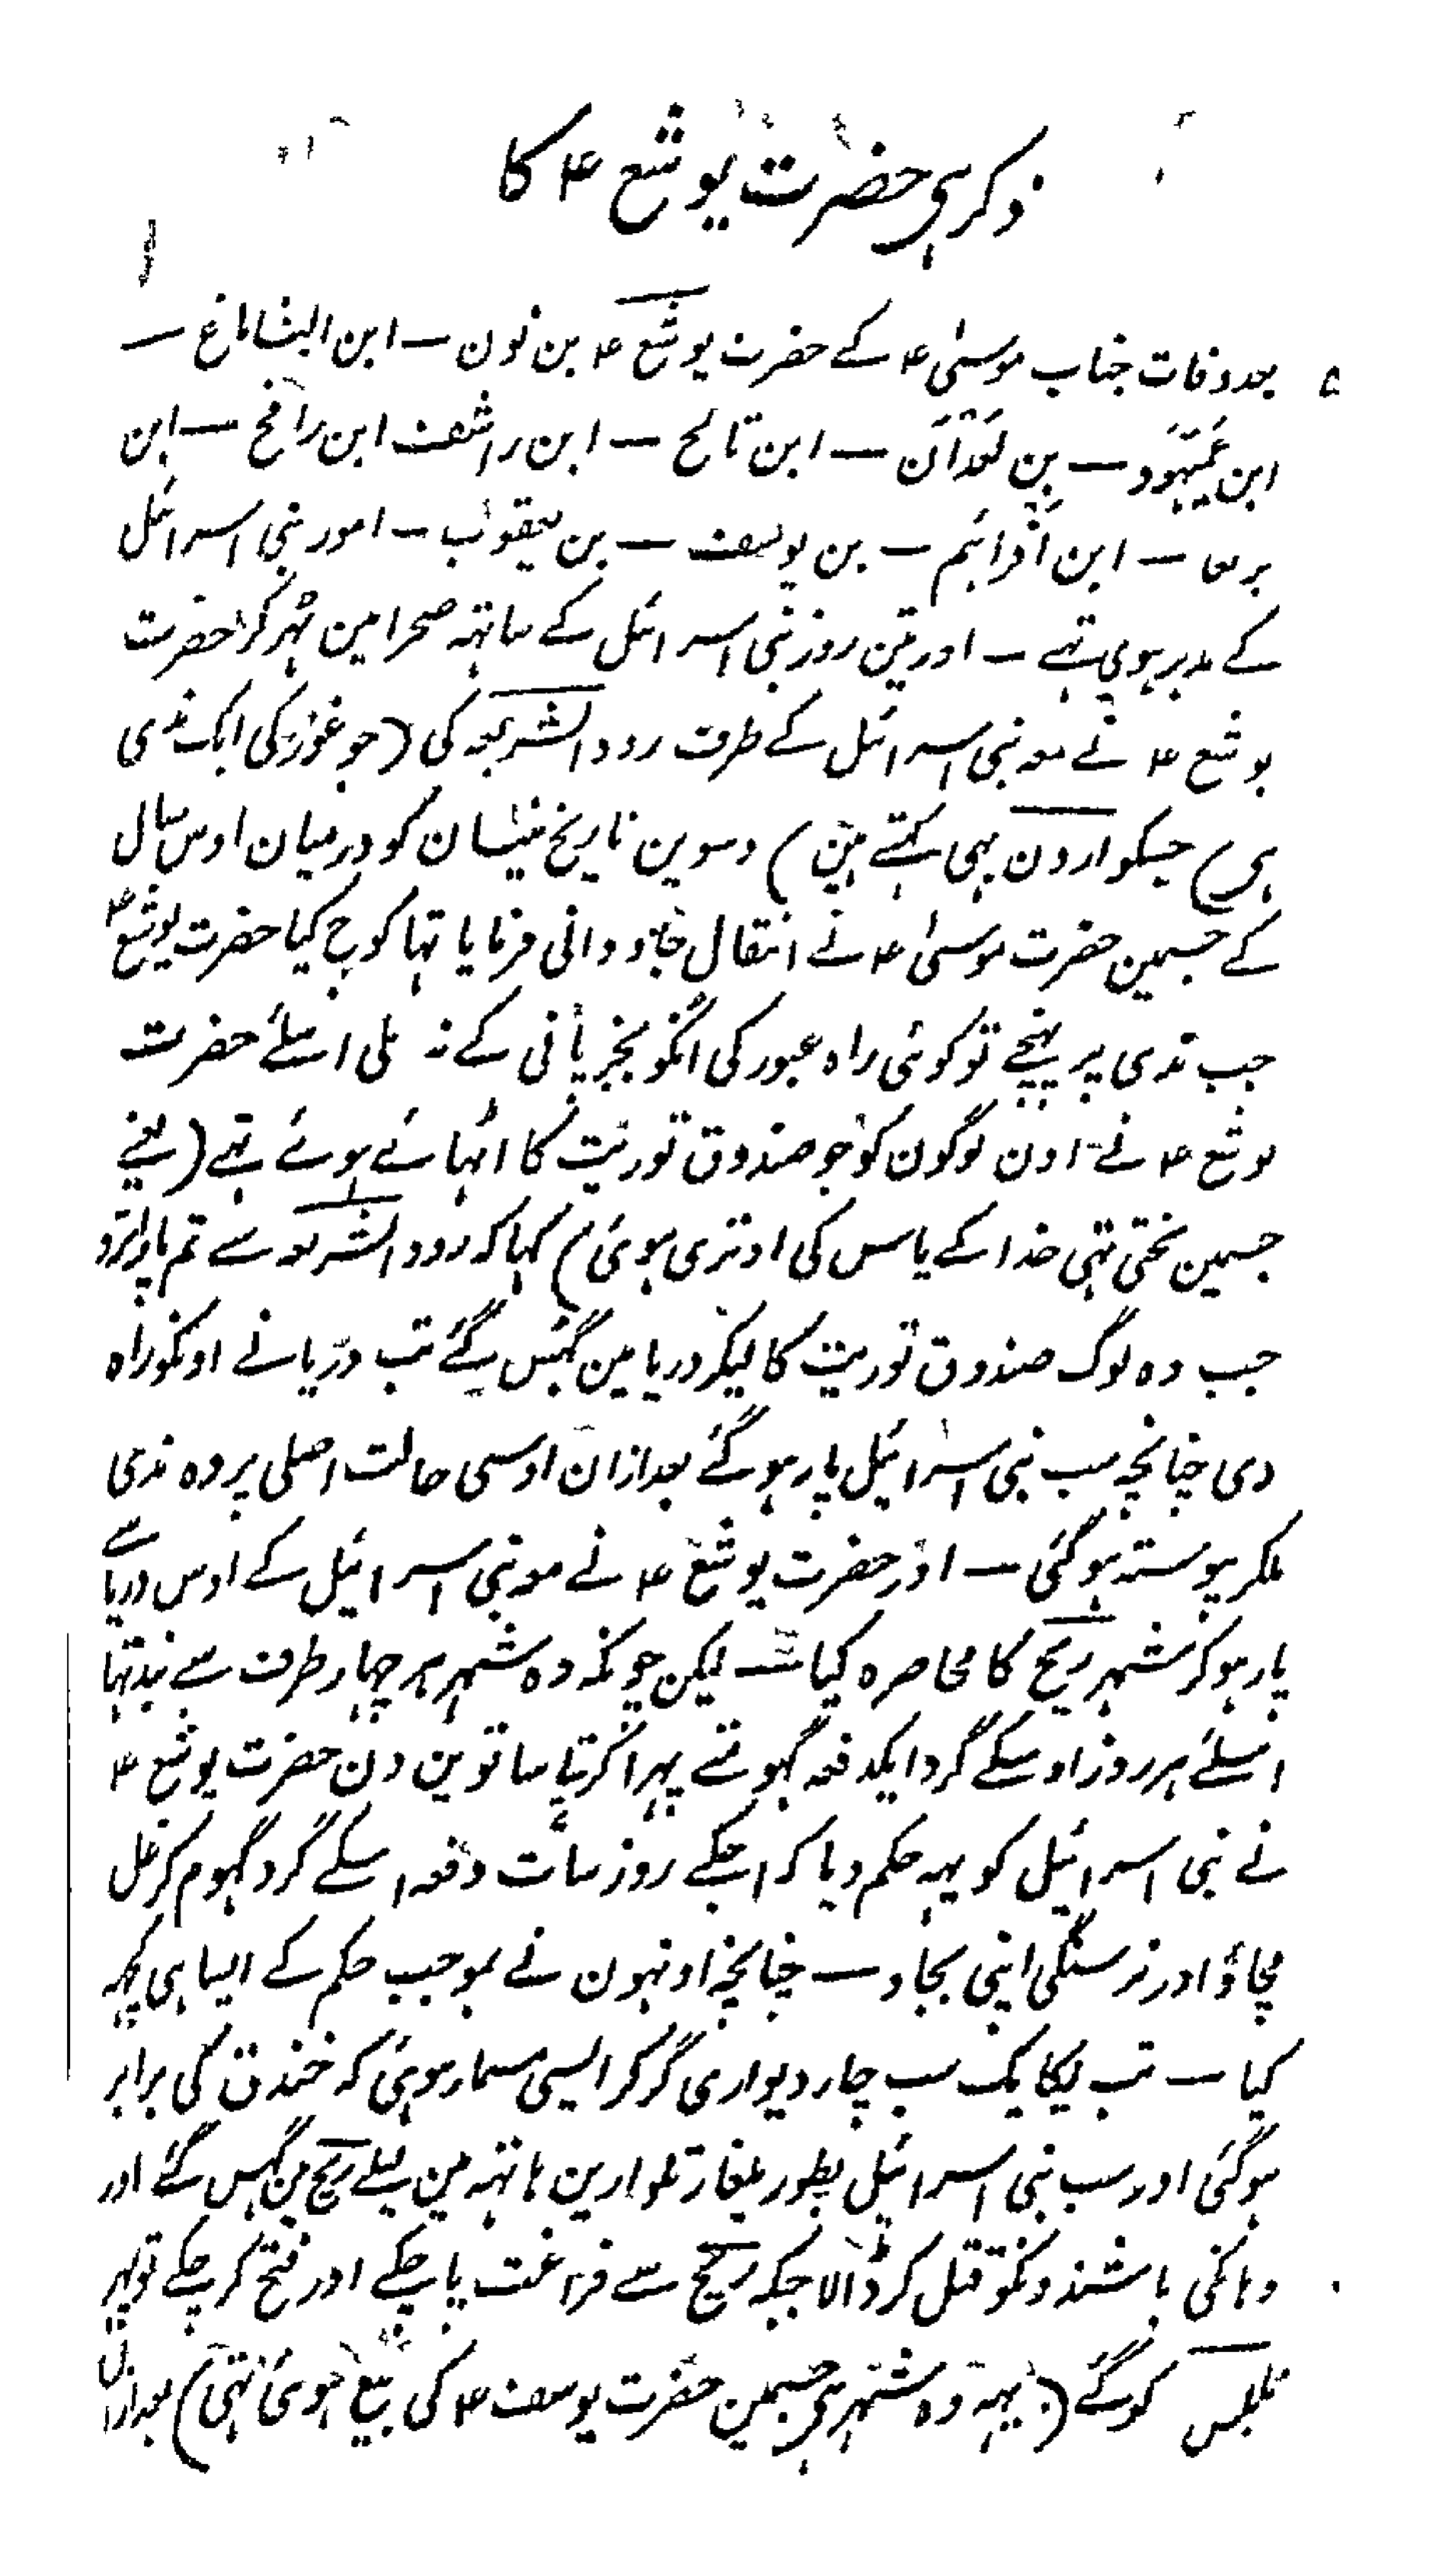 ذکر ہی حضرت یوشع ۴ کا
بعد وفات جناب موسیٰ ۴ کے حضرت یوشع ۴ بن نون — ابن الیشاماع —
ابن عَمیَہود — بن لَعدَان — ابن تالح — ابن راشف ابن رافح — ابن
بریعا — ابن اَفرائیم — بن یوسف — بن یعقوب — امور بنی اسرائیل
کے مدبر ہوی تہے — اور تین روز بنی اسرائیل کے ساتہہ صحرا مین ٹہر کر حضرت
یوشع ۴ نے معہ بنی اسرائیل کے طرف رود الشریعہ کی (جو غور کی ایک ندی
ہی) جسکو اردن بہی کہتے ہین) دسوین تاریخ نیسان کو درمیان اوس سال
کے جسمین حضرت موسیٰ ۴ نے انتقال جاودانی فرمایا تہا کوچ کیا حضرت یوشع ۴
جب ندی پر پہنچے تو کوئی راہ عبور کی انکو بجز پانی کے نہ ملی اسلئے حضرت
یوشع ۴ نے اون لوگون کو جو صندوق توریت کا اٹہائے ہوئے تہے (یعنے
جسمین تختی تہی خدا کے پاس کی اوتری ہوئی) کہا کہ رود الشریعہ سے تم پار اترو
جب وہ لوگ صندوق توریت کا لیکر دریا مین گہس گئے تب دریا نے اونکو راہ
دی چنانچہ سب بنی اسرائیل پار ہو گئے بعد ازان اوسی حالت اصلی پر وہ ندی
ملکر پیوستہ ہو گئی — اور حضرت یوشع ۴ نے معہ بنی اسرائیل کے اوس دریا سے
پار ہو کر شہر ریح کا محاصرہ کیا — لیکن چونکہ وہ شہر ہر چہار طرف سے بند تہا
اسلئے ہر روز اوسکے گرد ایکدفعہ گہومتے پہرا کرتے ساتوین دن حضرت یوشع ۴
نے بنی اسرائیل کو یہہ حکم دیا کہ ابکے روز سات دفعہ اسکے گرد گہوم کر غل
مچاؤ اور نرسنگی اپنی بجاو — چنانچہ اونہون نے بموجب حکم کے ایسا ہی کچہہ
کیا — تب یکایک سب چار دیواری گر کر ایسی مسمار ہوئی کہ خندق کی برابر
ہو گئی اور سب بنی اسرائیل بطور یلغار تلوارین ہاتہہ مین لیئے ریح مین گہس گئے اور
وہانکی باشندونکو قتل کر ڈالا جبکہ ریح سے فراغت پا چکے اور فتح کر چکے تو پہر
نابلس کو گئے (یہہ وہ شہر ہی جسمین حضرت یوسف ۴ کی بیع ہوئی تہی) بعد ازان